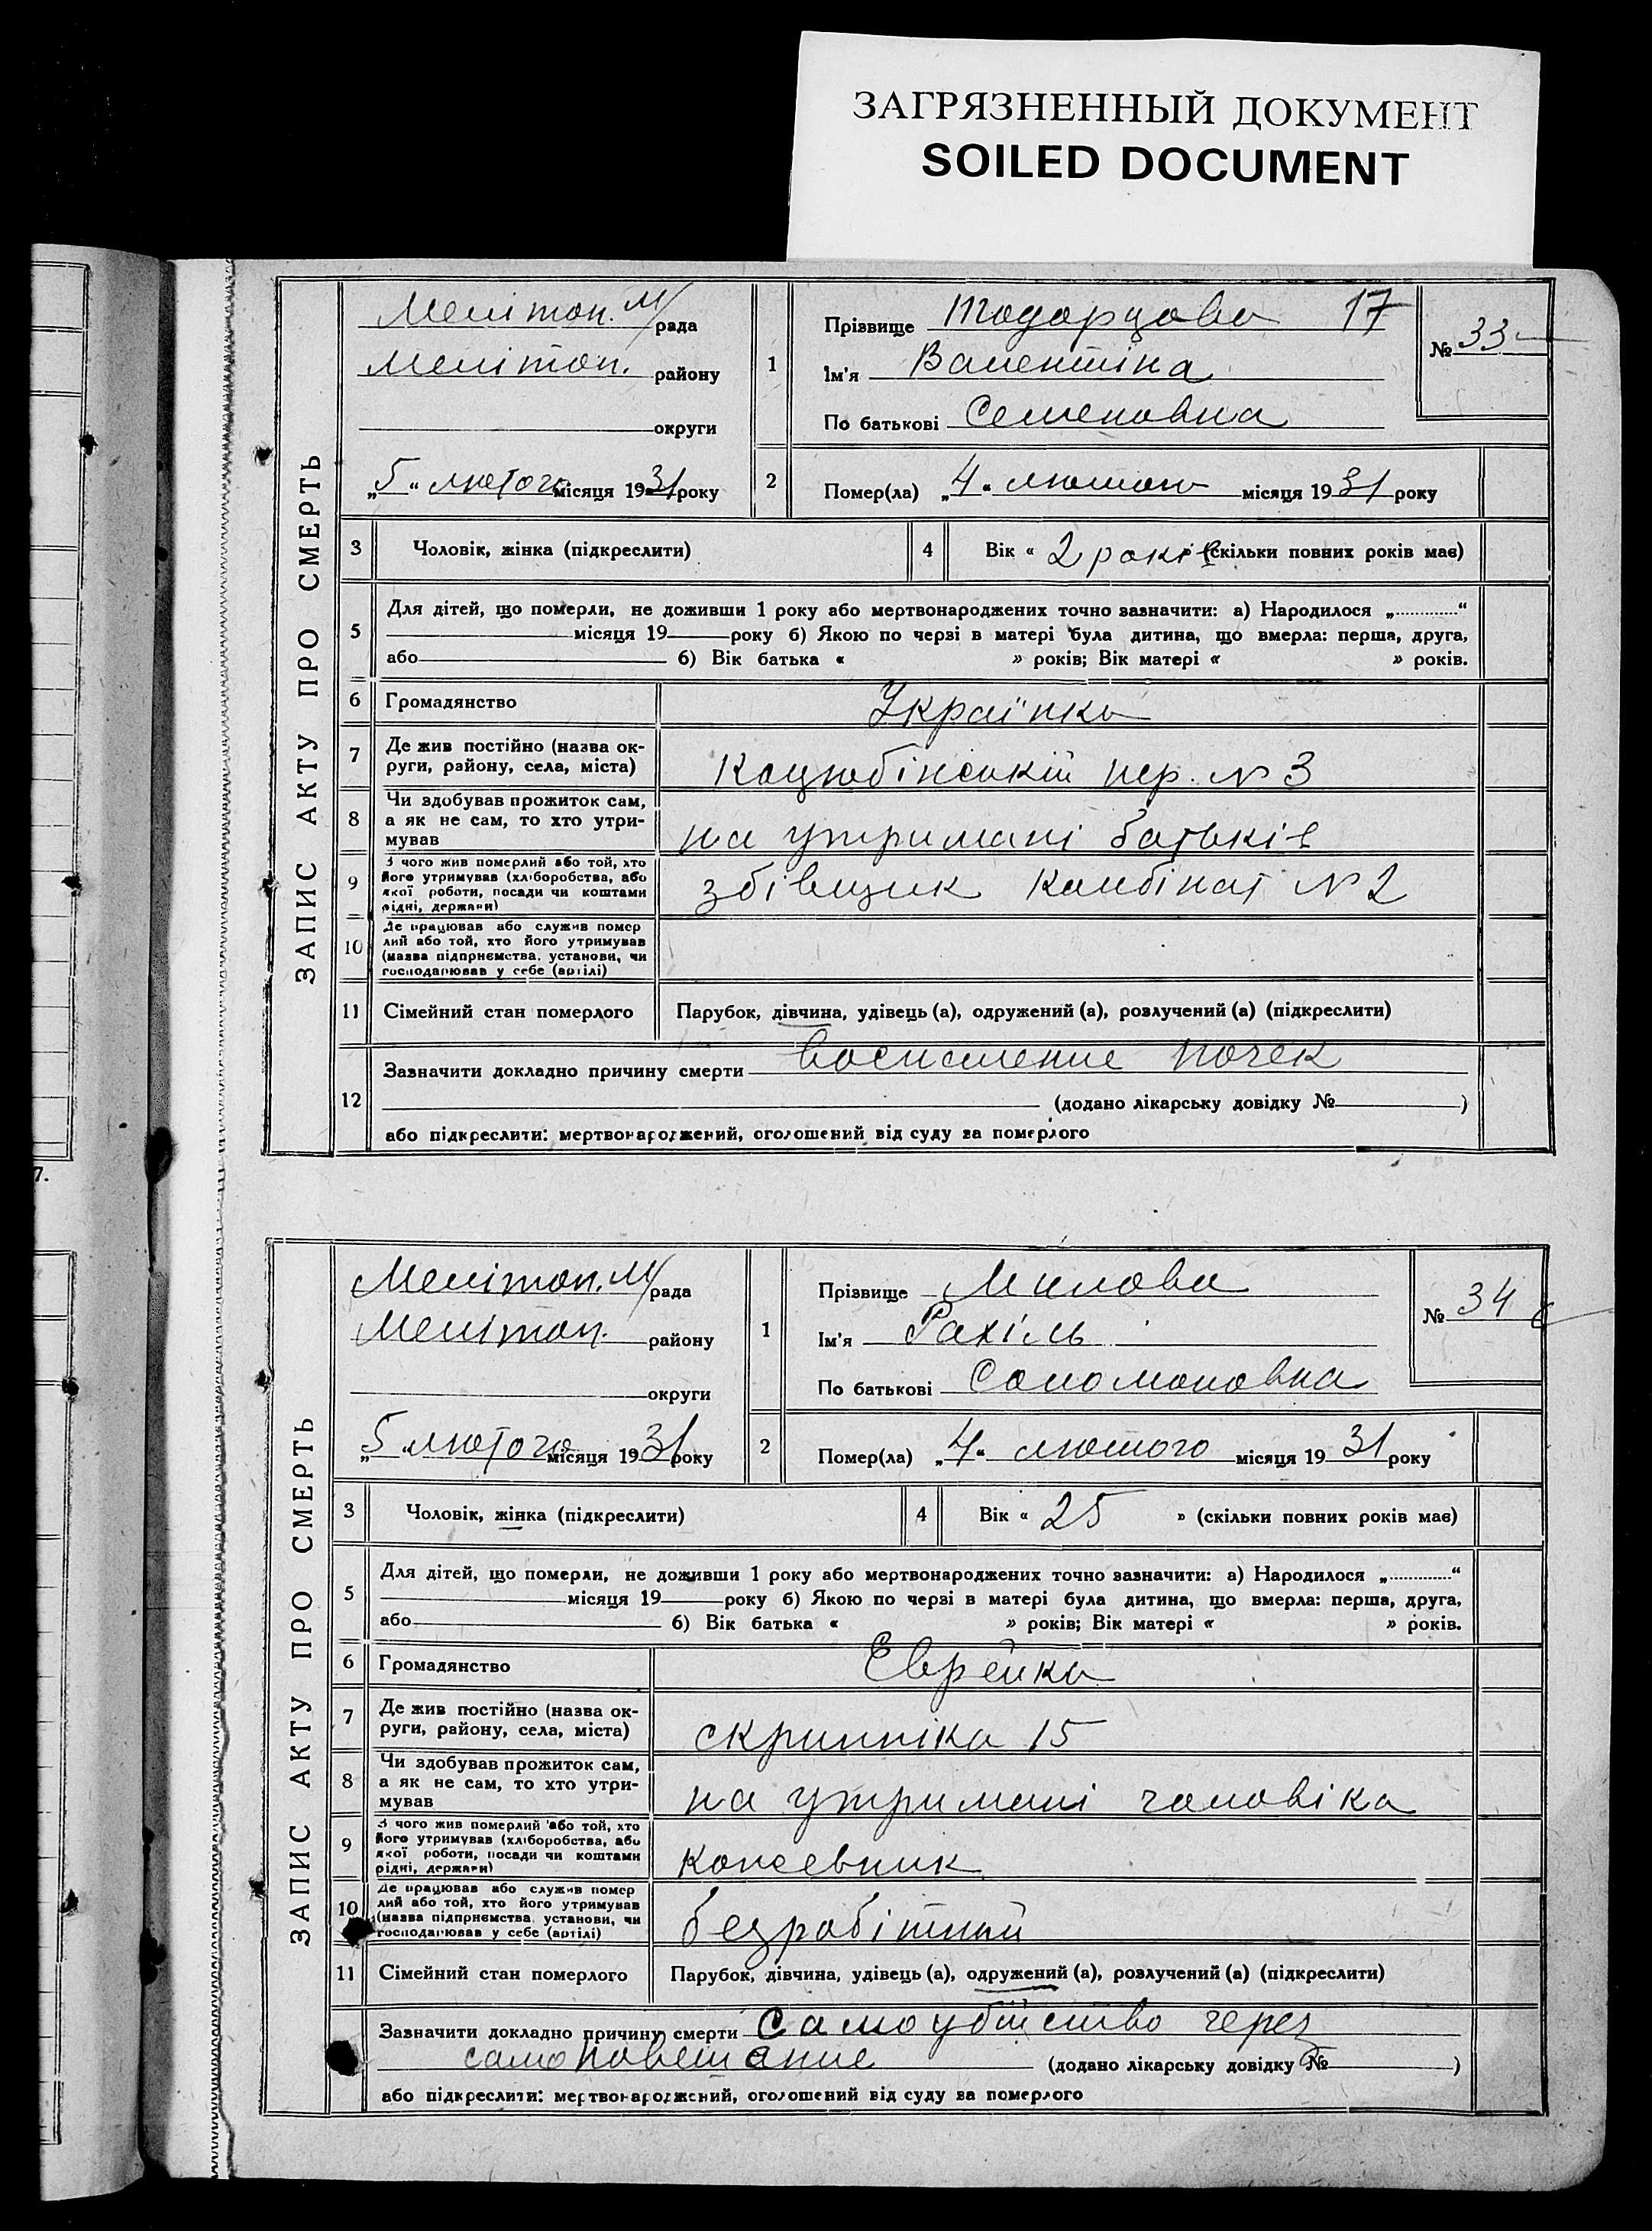 ЗАГРЯЗНЕННЫЙ ДОКУМЕНТ
SOILED DOCUMENT
7.
ЗАПИС АКТУ ПРО СМЕРТЬ
Мелітоп. м/рада
Мелітоп. району
округи
„5“ лютого місяця 1931 року
1
Прізвище 17
Ім'я Валентіна
По батькові Семеновна
№ 33
2
Помер(ла) „4“ лютого місяця 1931 року
3 Чоловік, жінка (підкреслити)
4 Вік « 2 років » (скільки повних років має)
5 Для дітей, що померли, не доживши 1 року або мертвонароджених точно зазначити: а) Народилося „..........“
місяця 19 року б) Якою по черзі в матері була дитина, що вмерла: перша, друга,
або б) Вік батька « » років; Вік матері « » років.
6 Громадянство Українка
7 Де жив постійно (назва ок-
руги, району, села, міста) Коцюбінській пер. № 3
8 Чи здобував прожиток сам,
а як не сам, то хто утри-
мував на утримані батьків
9 З чого жив померлий або той, хто
його утримував (хліборобства, або
якої роботи, посади чи коштами
рідні, держави) збівщик Комбінат № 2
10 Де працював або служив помер
лий або той, хто його утримував
(назва підприємства, установи, чи
господарював у себе (артілі)
11 Сімейний стан померлого Парубок, дівчина, удівець (а), одружений (а), розлучений (а) (підкреслити)
12 Зазначити докладно причину смерти воспаление почек
(додано лікарську довідку № )
або підкреслити: мертвонароджений, оголошений від суду за померлого
ЗАПИС АКТУ ПРО СМЕРТЬ
Мелітоп. м/рада
Мелітоп. району
округи
„5“ лютого місяця 1931 року
1
Прізвище Милова
Ім'я Рахіль
По батькові Соломоновна
№ 34
2
Помер(ла) „4“ лютого місяця 1931 року
3 Чоловік, жінка (підкреслити)
4 Вік « 25 » (скільки повних років має)
5 Для дітей, що померли, не доживши 1 року або мертвонароджених точно зазначити: а) Народилося „..........“
місяця 19 року б) Якою по черзі в матері була дитина, що вмерла: перша, друга,
або б) Вік батька « » років; Вік матері « » років.
6 Громадянство Еврейка
7 Де жив постійно (назва ок-
руги, району, села, міста) скрипніка 15
8 Чи здобував прожиток сам,
а як не сам, то хто утри-
мував на утримані чоловіка
9 З чого жив померлий або той, хто
його утримував (хліборобства, або
якої роботи, посади чи коштами
рідні, держави)
10 Де працював або служив помер
лий або той, хто його утримував
(назва підприємства, установи, чи
господарював у себе (артілі) безробітний
11 Сімейний стан померлого Парубок, дівчина, удівець (а), одружений (а), розлучений (а) (підкреслити)
Зазначити докладно причину смерти самоубійство через
самоповешание (додано лікарську довідку № )
або підкреслити: мертвонароджений, оголошений від суду за померлого